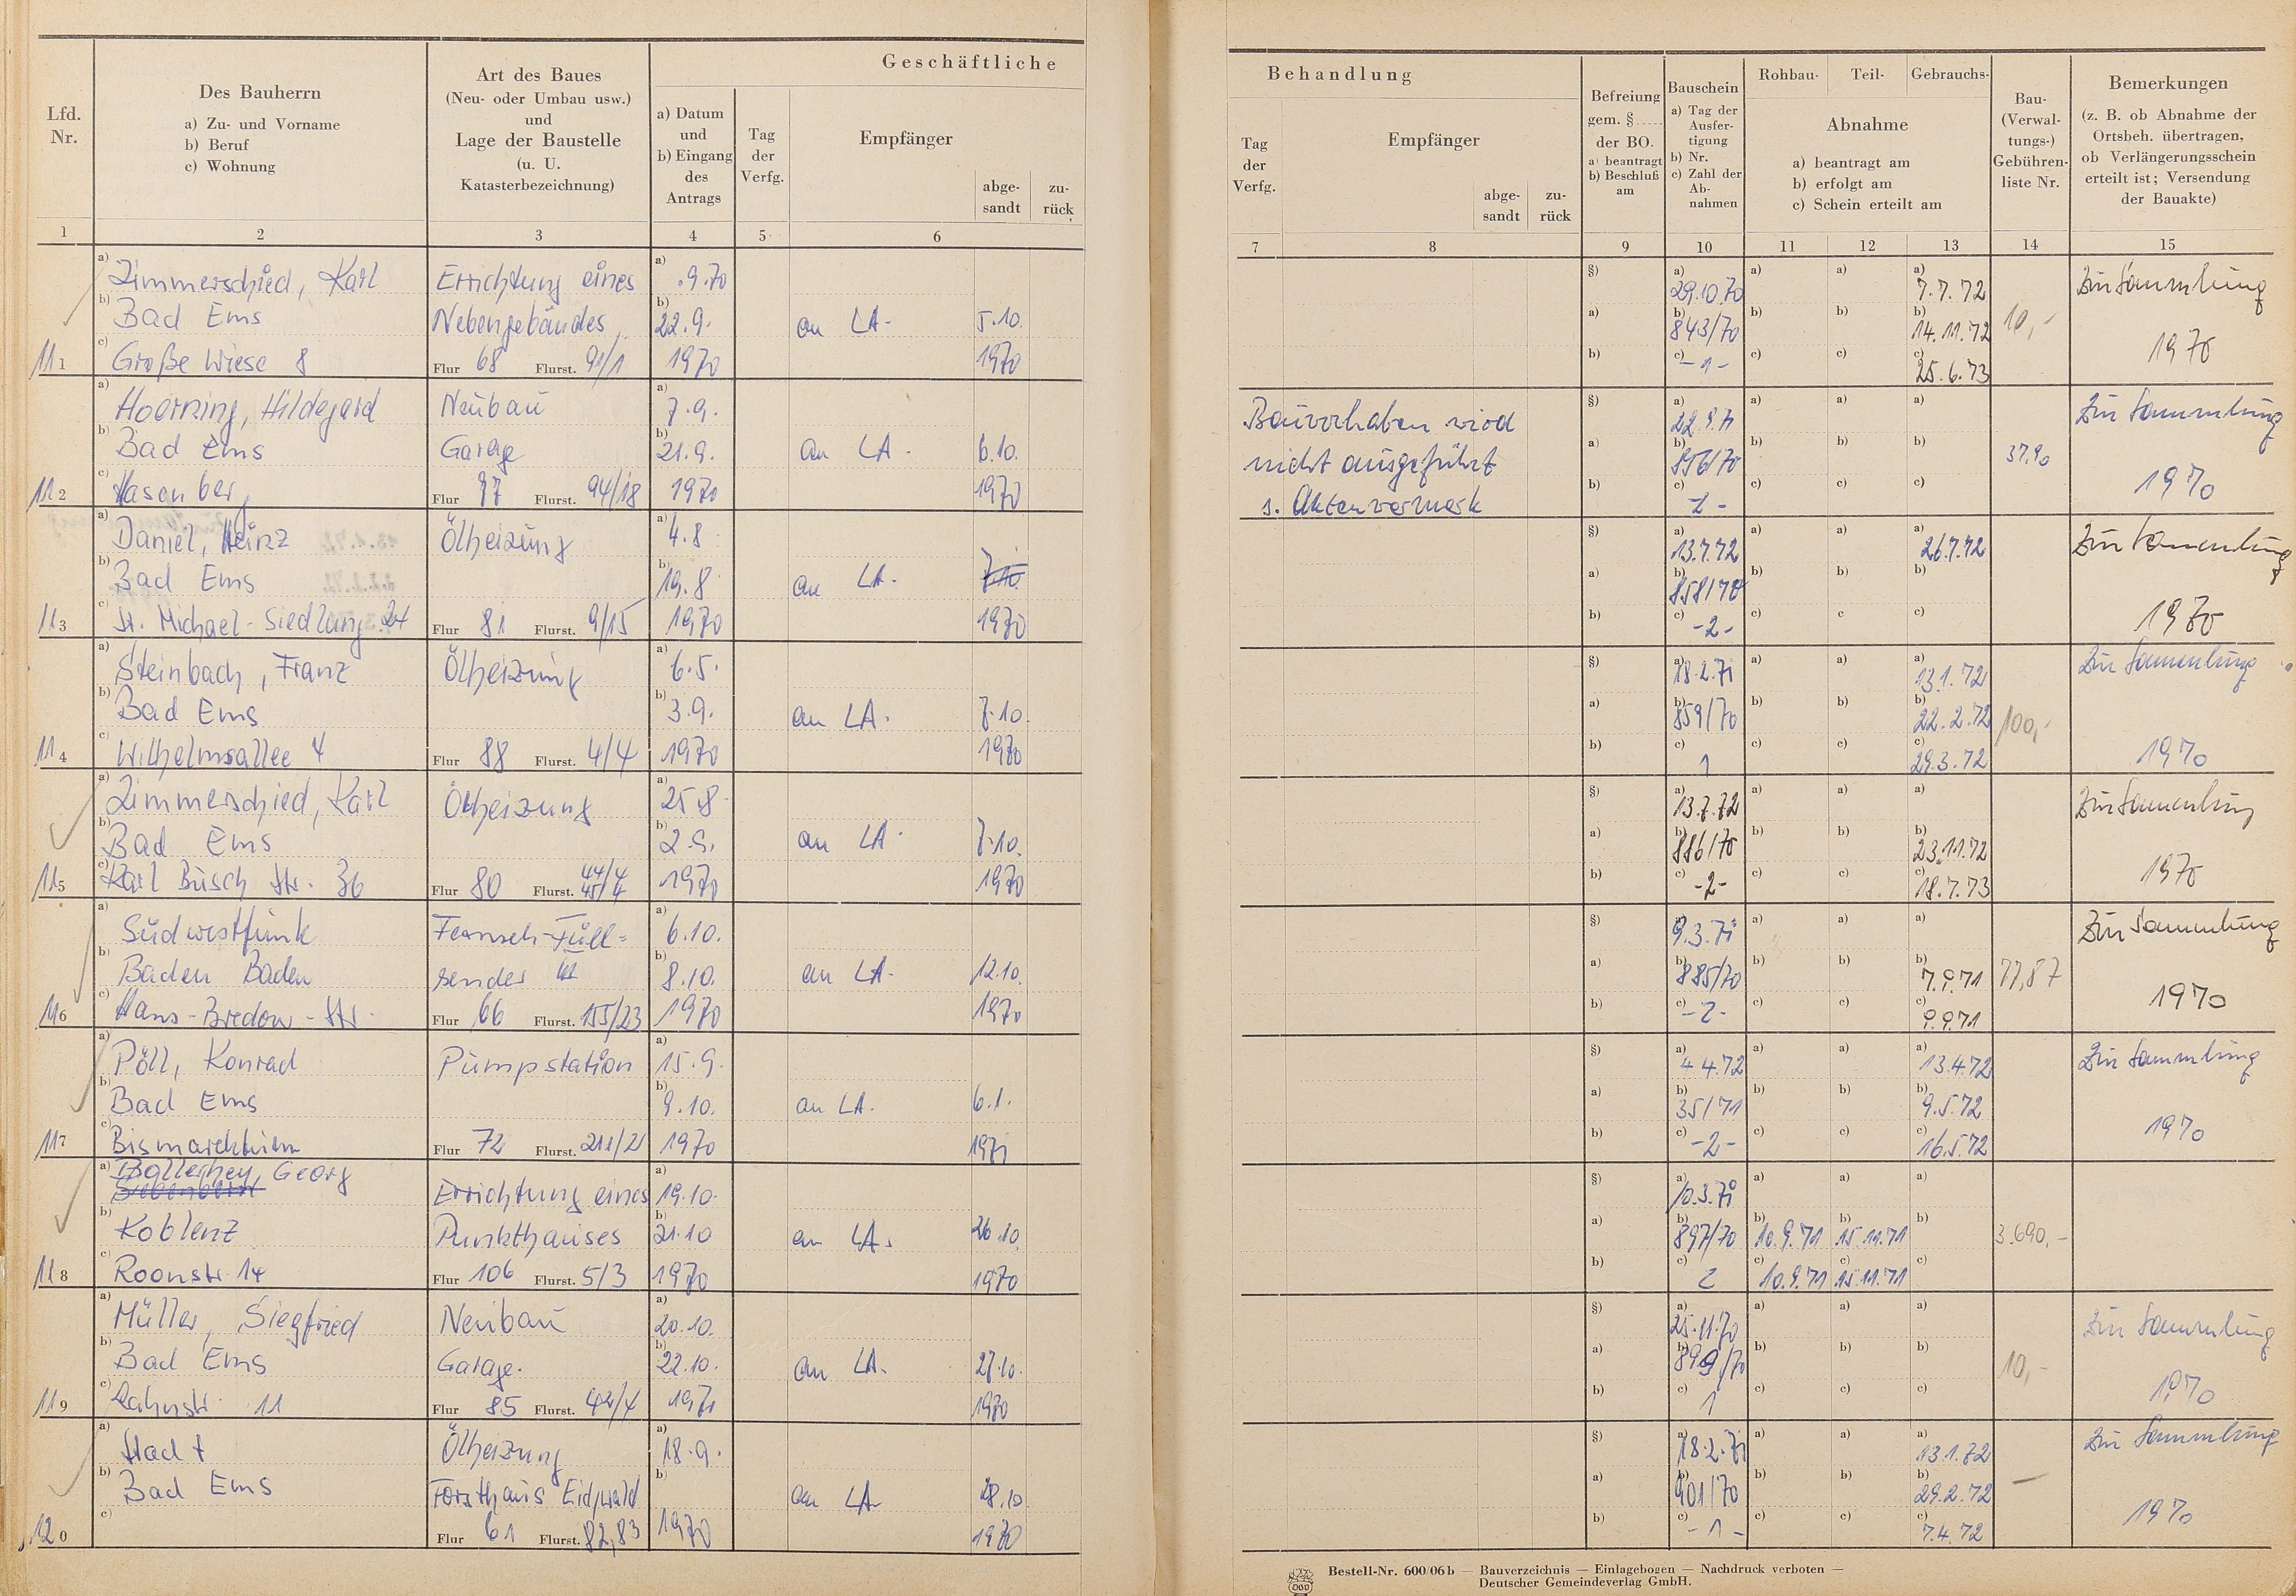 Geschäftliche
Lfd. Nr.
Des Bauherrn
a) Zu- und Vorname
b) Beruf
c) Wohnung
Art des Baues
(Neu- oder Umbau usw.)
und
Lage der Baustelle
(u. U.
Katasterbezeichnung)
a) Datum
und
b) Eingang
des
Antrags
Tag
der
Verfg.
Empfänger
abge-
sandt
zu-
rück
1 2 3 4 5 6
a) Zimmerschied, Karl Errichtung eines a) .9.70
b) Bad Ems Nebengebäudes b) 22.9. an LA. 5.10.
111 c) Große Wiese 8 Flur 68 Flurst. 91/1 1970 1970
a) Hoerning, Hildegard Neubau a) 7.9.
b) Bad Ems Garage b) 21.9. an LA. 6.10.
112 c) Hasenberg Flur 97 Flurst. 94/18 1970 1970
a) Daniel, Heinz Ölheizung a) 4.8.
b) Bad Ems b) 19.8. an LA. 7.10.
113 c) St. Michael-Siedlung 24 Flur 81 Flurst. 9/15 1970 1970
a) Steinbach, Franz Ölheizung a) 6.5.
b) Bad Ems b) 3.9. an LA. 7.10.
114 c) Wilhelmsallee 4 Flur 88 Flurst. 4/4 1970 1970
a) Zimmerschied, Karl Ölheizung a) 25.8.
b) Bad Ems b) 2.9. an LA. 7.10.
115 c) Karl Busch Str. 36 Flur 80 Flurst. 44/4 45/4 1970 1970
a) Südwestfunk Fernseh-Füll- a) 6.10.
b) Baden Baden sender b) 8.10. an LA. 12.10.
116 c) Hans-Bredow-Str. Flur 66 Flurst. 155/23 1970 1970
a) Pöll, Konrad Pumpstation a) 15.9.
b) Bad Ems b) 9.10. an LA. 6.1.
117 c) Bismarckturm Flur 72 Flurst. 211/21 1970 1971
a) Bollerhey, Georg Errichtung eines a) 19.10.
b) Koblenz Punkthauses b) 21.10 an LA. 26.10.
118 c) Roonstr. 14 Flur 106 Flurst. 5/3 1970 1970
a) Müller, Siegfried Neubau a) 20.10.
b) Bad Ems Garage. b) 22.10. an LA. 27.10.
119 c) Lahnstr. 11 Flur 85 Flurst. 42/4 1970
a) Stadt Ölheizung a) 18.9.
b) Bad Ems Forsthaus b) an LA. 28.10
120 c) Flur 61 Flurst. 82,83 1970 1970
Behandlung
Tag
der
Verfg.
Empfänger
abge-
sandt
zu-
rück
Befreiung
gem. §
der BO.
a) beantragt
b) Beschluß
am
Bauschein
a) Tag der
Ausfer-
tigung
b) Nr.
c) Zahl der
Ab-
nahmen
Rohbau- Teil- Gebrauchs-
Abnahme
a) beantragt am
b) erfolgt am
c) Schein erteilt am
Bau-
(Verwal-
tungs-)
Gebühren-
liste Nr.
Bemerkungen
(z. B. ob Abnahme der
Ortsbeh. übertragen,
ob Verlängerungsschein
erteilt ist; Versendung
der Bauakte)
7 8 9 10 11 12 13 14 15
§) a) 29.10.70 a) a) a) 7.7.72 Zur Sammlung
a) b) 843/70 b) b) b) 14.11.72 10,-
b) c) -1- c) c) c) 25.6.73 1970
Bauvorhaben wird §) a) a) a) a) Zur Sammlung
nicht ausgeführt a) b) 856/70 b) b) b) 37,90
s. Aktenvermerk b) c) c) c) c) 1970
§) a) 13.7.72 a) a) a) 26.7.72 Zur Sammlung
a) b) 858/70 b) b) b)
b) c) -2- c) c c) 1970
§) a) 18.2.71 a) a) a) 13.1.72 Zur Sammlung
a) b) 859/70 b) b) b) 22.2.72 100,-
b) c) 1 c) c) c) 29.3.72 1970
§) a) 13.7.72 a) a) a) Zur Sammlung
a) b) 886/70 b) b) b) 23.11.72
b) c) -2- c) c) c) 18.7.73 1970
§) a) 9.3.71 a) a) a) Zur Sammlung
a) b) 885/70 b) b) b) 7.9.71 77,87
b) c) -2- c) c) c) 9.9.71 1970
§) a) 4.4.72 a) a) a) 13.4.72 Zur Sammlung
a) b) 35/71 b) b) b) 9.5.72
b) c) -2- c) c) c) 16.5.72 1970
§) a) 10.3.71 a) a) a)
a) b) 897/70 b) 10.9.71 b) 15.11.71 b) 3.690,-
b) c) 2 c) 10.9.71 c) 15.11.71 c)
§) a) 25.11.70 a) a) a) Zur Sammlung
a) b) 899/70 b) b) b) 10,-
b) c) 1 c) c) c) 1970
§) a) 18.2.71 a) a) a) 13.1.72 Zur Sammlung
a) b) 901/70 b) b) b) 29.2.72 —
b) c) -1- c) c) c) 7.4.72 1970
Bestell-Nr. 600/06 b — Bauverzeichnis — Einlagebogen — Nachdruck verboten —
Deutscher Gemeindeverlag GmbH.